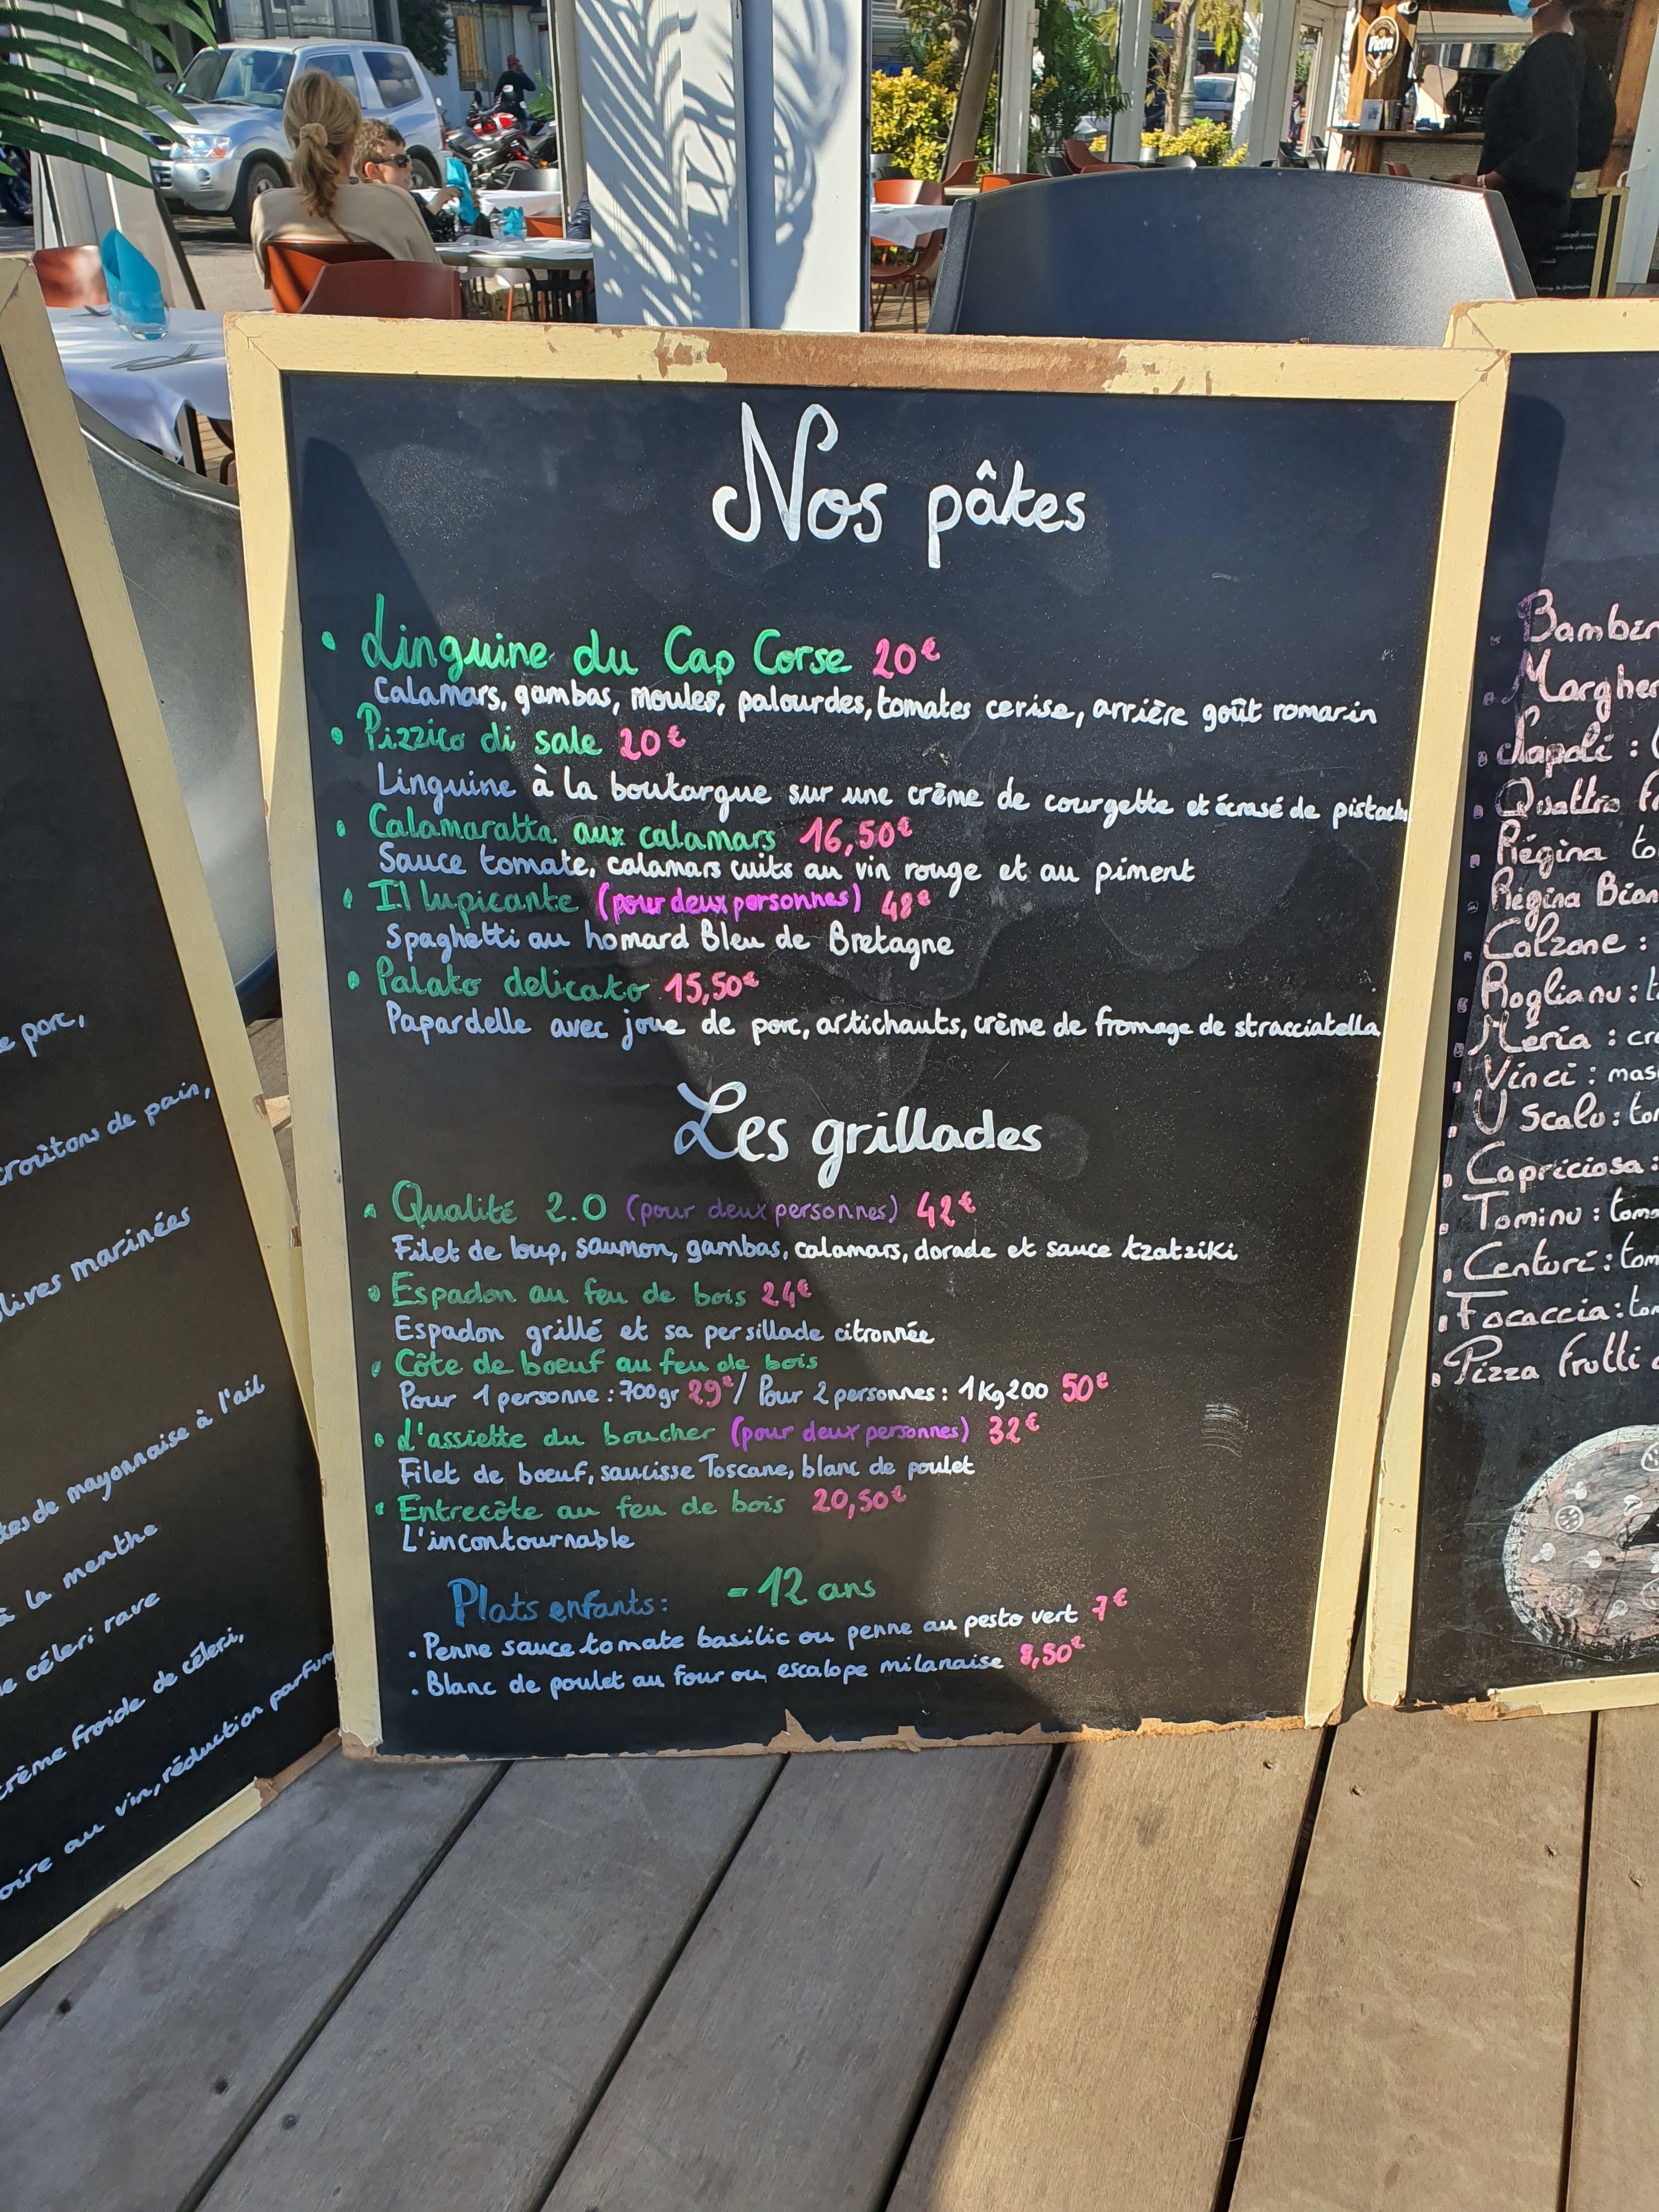 Pietra
Nos pâtes
• Linguine du Cap Corse 20€
Calamars, gambas, moules, palourdes, tomates cerise, arrière goût romarin
• Pizzico di sale 20€
Linguine à la boutargue sur une crème de courgette et écrasé de
• Calamaratta aux calamars 16,50€
Sauce tomate, calamars cuits au vin rouge et au piment
• Il lupicante (pour deux personnes) 48€
Spaghetti au homard Bleu de Bretagne
• Palato delicato 15,50€
Papardelle avec joue de porc, artichauts, crème de fromage de stracciatella
Les grillades
• Qualité 2.0 (pour deux personnes) 42€
Filet de loup, saumon, gambas, calamars, dorade et sauce tzatziki
• Espadon au feu de bois 24€
Espadon grillé et sa persillade citronnée
• Côte de boeuf au feu de bois
Pour 1 personne : 700gr 29€ / Pour 2 personnes : 1Kg200 50€
• L'assiette du boucher (pour deux personnes) 32€
Filet de boeuf, saucisse Toscane, blanc de poulet
• Entrecôte au feu de bois 20,50€
L'incontournable
Plats enfants : - 12 ans
. Penne sauce tomate basilic ou penne au pesto vert 7€
. Blanc de poulet au four ou escalope milanaise 8,50€
porc,
croûtons de pain,
marinées
de mayonnaise à l'ail
à la menthe
céleri rave
crème froide de céleri,
au vin, réduction
Napoli :
Quattro
Régina
Régina
Calzone :
Roglianu :
Méria :
Vinci :
U Scalu :
Capriciosa :
Tominu :
Centuri :
Focaccia :
Pizza Frutti